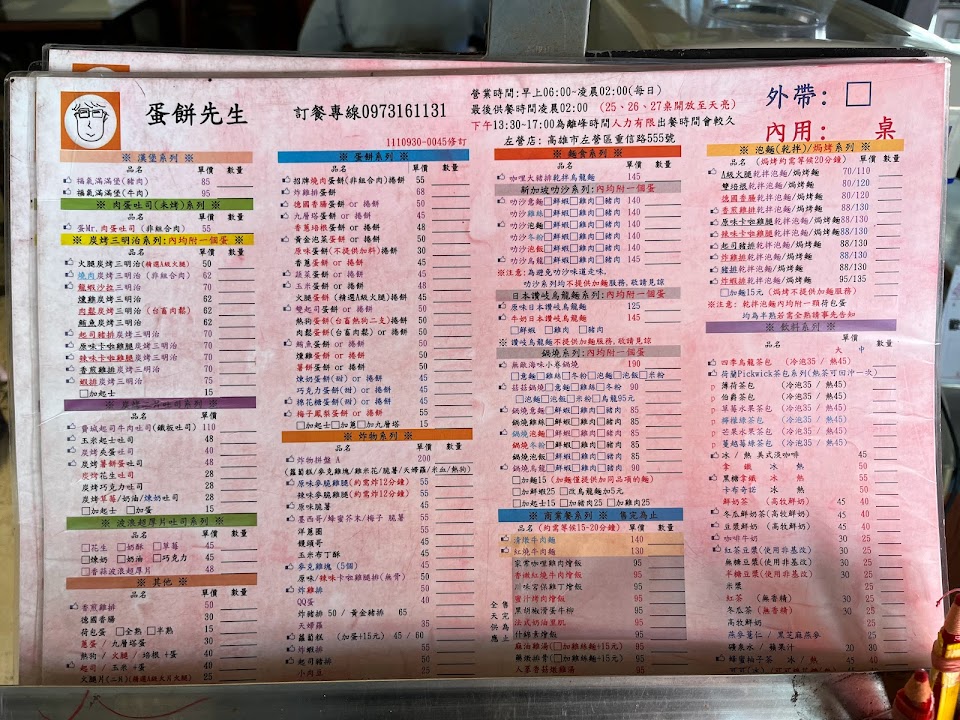 蛋餅先生
訂餐專線0973161131
1110930-0045修訂
營業時間:早上06:00~凌晨02:00(每日)
最後供餐時間凌晨02:00 (25、26、27桌開放至天亮)
下午13:30~17:00為離峰時間人力有限出餐時間會較久
左營店: 高雄市左營區重信路555號
外帶: □
內用: 桌
※ 漢堡系列 ※
品名 單價 數量
福氣滿滿堡(豬肉) 85
福氣滿滿堡(牛肉) 95
※ 肉蛋吐司(未烤)系列 ※
品名 單價 數量
蛋Mr.肉蛋吐司 (非組合肉) 55
※ 炭烤三明治系列:內均附一個蛋 ※
品名 單價 數量
火腿炭烤三明治(精選A級火腿) 50
燒肉炭烤三明治 (非組合肉) 62
龍蝦沙拉三明治 70
燻雞炭烤三明治 62
肉鬆炭烤三明治 (台畜肉鬆) 62
鮪魚炭烤三明治 62
起司豬排炭烤三明治 70
原味卡啦雞腿炭烤三明治 70
辣味卡啦雞腿炭烤三明治 70
香煎雞排炭烤三明治 70
蝦排炭烤三明治 75
□加起士 15
品名 單價
費城起司牛肉吐司(鐵板吐司) 110
玉米起士吐司 48
炭烤夾蛋吐司 40
炭烤薯餅蛋吐司 48
炭烤花生吐司 28
炭烤巧克力吐司 28
炭烤草莓/奶油/煉奶吐司 28
□加起士 □加蛋 15
※ 波浪超厚片吐司系列 ※
品名 單價 數量
□花生 □奶酥 □草莓 45
□煉奶 □奶油 □巧克力 45
□香蒜波浪超厚片 48
※ 其他 ※
品名 單價 數量
香煎雞排 50
德國香腸 30
荷包蛋 □全熟 □半熟 15
蔥蛋 / 九層塔蛋 30
熱狗 / 火腿 / 培根 +蛋 40
起司 / 玉米 +蛋 40
火腿片(二片)(精選A級大片火腿) 25
※ 蛋餅系列 ※
品名 單價 數量
招牌燒肉蛋餅(非組合肉)捲餅 55
炸雞排蛋餅 68
德國香腸蛋餅 or 捲餅 50
九層塔蛋餅 or 捲餅 45
香蔥培根蛋餅 or 捲餅 50
黃金泡菜蛋餅 or 捲餅 50
原味蛋餅(不提供加料)捲餅 30
香蔥蛋餅 or 捲餅 35
蔬菜蛋餅 or 捲餅 45
玉米蛋餅 or 捲餅 45
火腿蛋餅 (精選A級火腿)捲餅 45
雙起司蛋餅 or 捲餅 50
熱狗蛋餅(台畜熱狗二支)捲餅 45
肉鬆蛋餅(台畜肉鬆) or 捲餅 50
鮪魚蛋餅 or 捲餅 50
燻雞蛋餅 or 捲餅 50
薯餅蛋餅 or 捲餅 50
煉奶蛋餅(甜) or 捲餅 40
巧克力蛋餅(甜) or 捲餅 40
棉花糖蛋餅(甜) or 捲餅 40
梅子鳳梨蛋餅 or 捲餅 55
□加起士□加蔥□加九層塔 15
※ 炸物系列 ※
品名 單價 數量
炸物拼盤A 200
(蘿蔔糕/麥克雞塊/雞米花/脆薯/天婦羅/米血/熱狗)
原味脆麥雞腿(約需炸12分鐘) 55
辣味脆麥雞腿(約需炸12分鐘) 55
原味脆薯 50
墨西哥/蜂蜜芥末/梅子 脆薯 55
洋蔥圈 45
饅頭哥 45
玉米布丁酥 45
麥克雞塊 (5個) 45
原味/辣味卡啦雞腿排(無骨) 50
炸雞排 50
QQ蛋 40
炸豬排 50 / 黃金豬排 65
天婦羅 35
蘿蔔糕 (加蛋+15元) 45 / 60
炸蝦排 55
起司豬排 55
小肉豆 50
※ 麵食系列 ※
品名 單價 數量
咖哩大豬排乾拌烏龍麵 145
新加坡叻沙系列:內均附一個蛋
叻沙意麵□鮮蝦□雞肉□豬肉 140
叻沙雞絲□鮮蝦□雞肉□豬肉 140
叻沙泡麵□鮮蝦□雞肉□豬肉 140
叻沙冬粉□鮮蝦□雞肉□豬肉 140
叻沙泡飯□鮮蝦□雞肉□豬肉 140
叻沙烏龍□鮮蝦□雞肉□豬肉 145
※注意:為避免叻沙味道走味,
叻沙系列均不提供加麵服務,敬請見諒
日本讚岐烏龍麵系列:內均附一個蛋
原味日本讚岐烏龍麵 125
牛奶日本讚岐烏龍麵 145
□鮮蝦 □雞肉 □豬肉
※ 讚岐烏龍麵不提供加麵服務,敬請見諒
※ 鍋燒系列:內均附一個蛋
無敵海味小卷鍋燒 190
□意麵□雞絲□冬粉□泡麵□泡飯□米粉
菇菇鍋燒□意麵□雞絲□冬粉 90
□泡麵□泡飯□米粉□烏龍95元
鍋燒意麵□鮮蝦□雞肉□豬肉 85
鍋燒雞絲□鮮蝦□雞肉□豬肉 85
鍋燒泡麵□鮮蝦□雞肉□豬肉 85
鍋燒冬粉□鮮蝦□雞肉□豬肉 85
鍋燒泡飯□鮮蝦□雞肉□豬肉 85
鍋燒烏龍□鮮蝦□雞肉□豬肉 90
□加麵15 (加麵僅提供加同品項的麵)
□加鮮蝦25 □改烏龍麵加5元
□加起士15 □加豬肉25 □加雞肉25
※ 商業餐系列 ※ 售完為止
品名 (約需等候15-20分鐘) 單價 數量
清燉牛肉麵 140
紅燒牛肉麵 130
家常咖哩雞肉燴飯 95
香嫩紅燒牛肉燴飯 95
川味宮保雞丁燴飯 95
蜜汁烤肉燴飯 95
黑胡椒滑蛋牛柳 95
法式奶油里肌 95
什錦素燴飯 95
麻油雞湯(□加雞絲麵+15元) 95
藥燉排骨(□加雞絲麵+15元) 95
人蔘香菇燉雞湯 95
全天供應
售完為止
※ 泡麵(乾拌)/焗烤系列 ※
品名 (焗烤約需等20分鐘) 單價 數量
A級火腿乾拌泡麵/焗烤麵 70/110
雙培根乾拌泡麵/焗烤麵 80/120
德國香腸乾拌泡麵/焗烤麵 80/120
香煎雞排乾拌泡麵/焗烤麵 88/130
原味卡啦雞腿乾拌泡麵/焗烤麵 88/130
辣味卡啦雞腿乾拌泡麵/焗烤麵 88/130
起司豬排乾拌泡麵/焗烤麵 88/130
炸雞排乾拌泡麵/焗烤麵 88/130
豬排乾拌泡麵/焗烤麵 88/130
炸蝦排乾拌泡麵/焗烤麵 95/135
□加麵15元 (焗烤不提供加麵服務)
※注意: 乾拌泡麵內均附一顆荷包蛋
均為半熟若需全熟請事先告知
※ 飲料系列 ※
品名 大 中 數量
四季烏龍茶包 (冷泡35 / 熱45)
荷蘭Pickwick茶包系列(熱茶可回沖一次)
p 薄荷茶包 (冷泡35 / 熱45)
p 伯爵茶包 (冷泡35 / 熱45)
p 草莓水果茶包 (冷泡35 / 熱45)
p 檸檬綠茶包 (冷泡35 / 熱45)
p 芒果水果茶包 (冷泡35 / 熱45)
p 蔓越莓綠茶包 (冷泡35 / 熱45)
冰 / 熱 美式淡咖啡 45
拿 鐵 冰 熱 50
黑糖拿鐵 冰 熱 50
卡布奇諾 冰 熱 50
鮮奶茶 (高牧鮮奶) 45 40
冬瓜鮮奶茶(高牧鮮奶) 45
豆漿鮮奶 (高牧鮮奶) 45
咖啡牛奶 30
紅茶豆漿(使用非基改) 30
無糖豆漿(使用非基改) 30
半糖豆漿(使用非基改) 30
米漿 30
紅茶 (無香精) 30 25
冬瓜茶 (無香精) 30 25
高牧鮮奶
燕麥薏仁 / 黑芝麻燕麥
礦泉水 / 蘋果汁 20 30
蜂蜜柚子茶 冰 / 熱